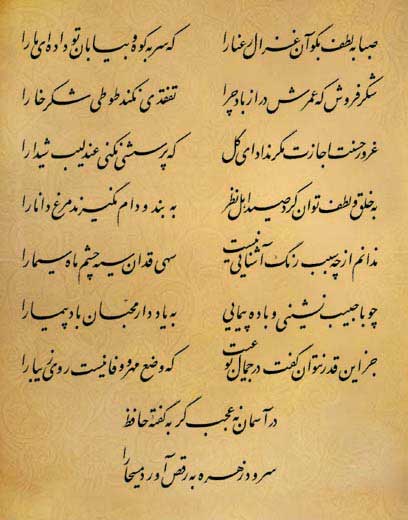 صبا به لطف بگو آن غزال رعنا را که سر به کوه و بیابان تو داده‌ای ما را
شکر فروش که عمرش دراز باد چرا تفقدی نکند طوطی شکرخا را
غرور حسنت اجازت مگر نداد ای گل که پرسشی نکنی عندلیب شیدا را
به خلق و لطف توان کرد صید اهل نظر به بند و دام نگیرند مرغ دانا را
ندانم از چه سبب رنگ آشنایی نیست سهی قدان سیه چشم ماه سیما را
چو با حبیب نشینی و باده پیمایی به یاد دار محبان بادپیما را
جز این قدر نتوان گفت در جمال تو عیب که وضع مهر و وفا نیست روی زیبا را
در آسمان نه عجب گر به گفته حافظ
سرود زهره به رقص آورد مسیحا را